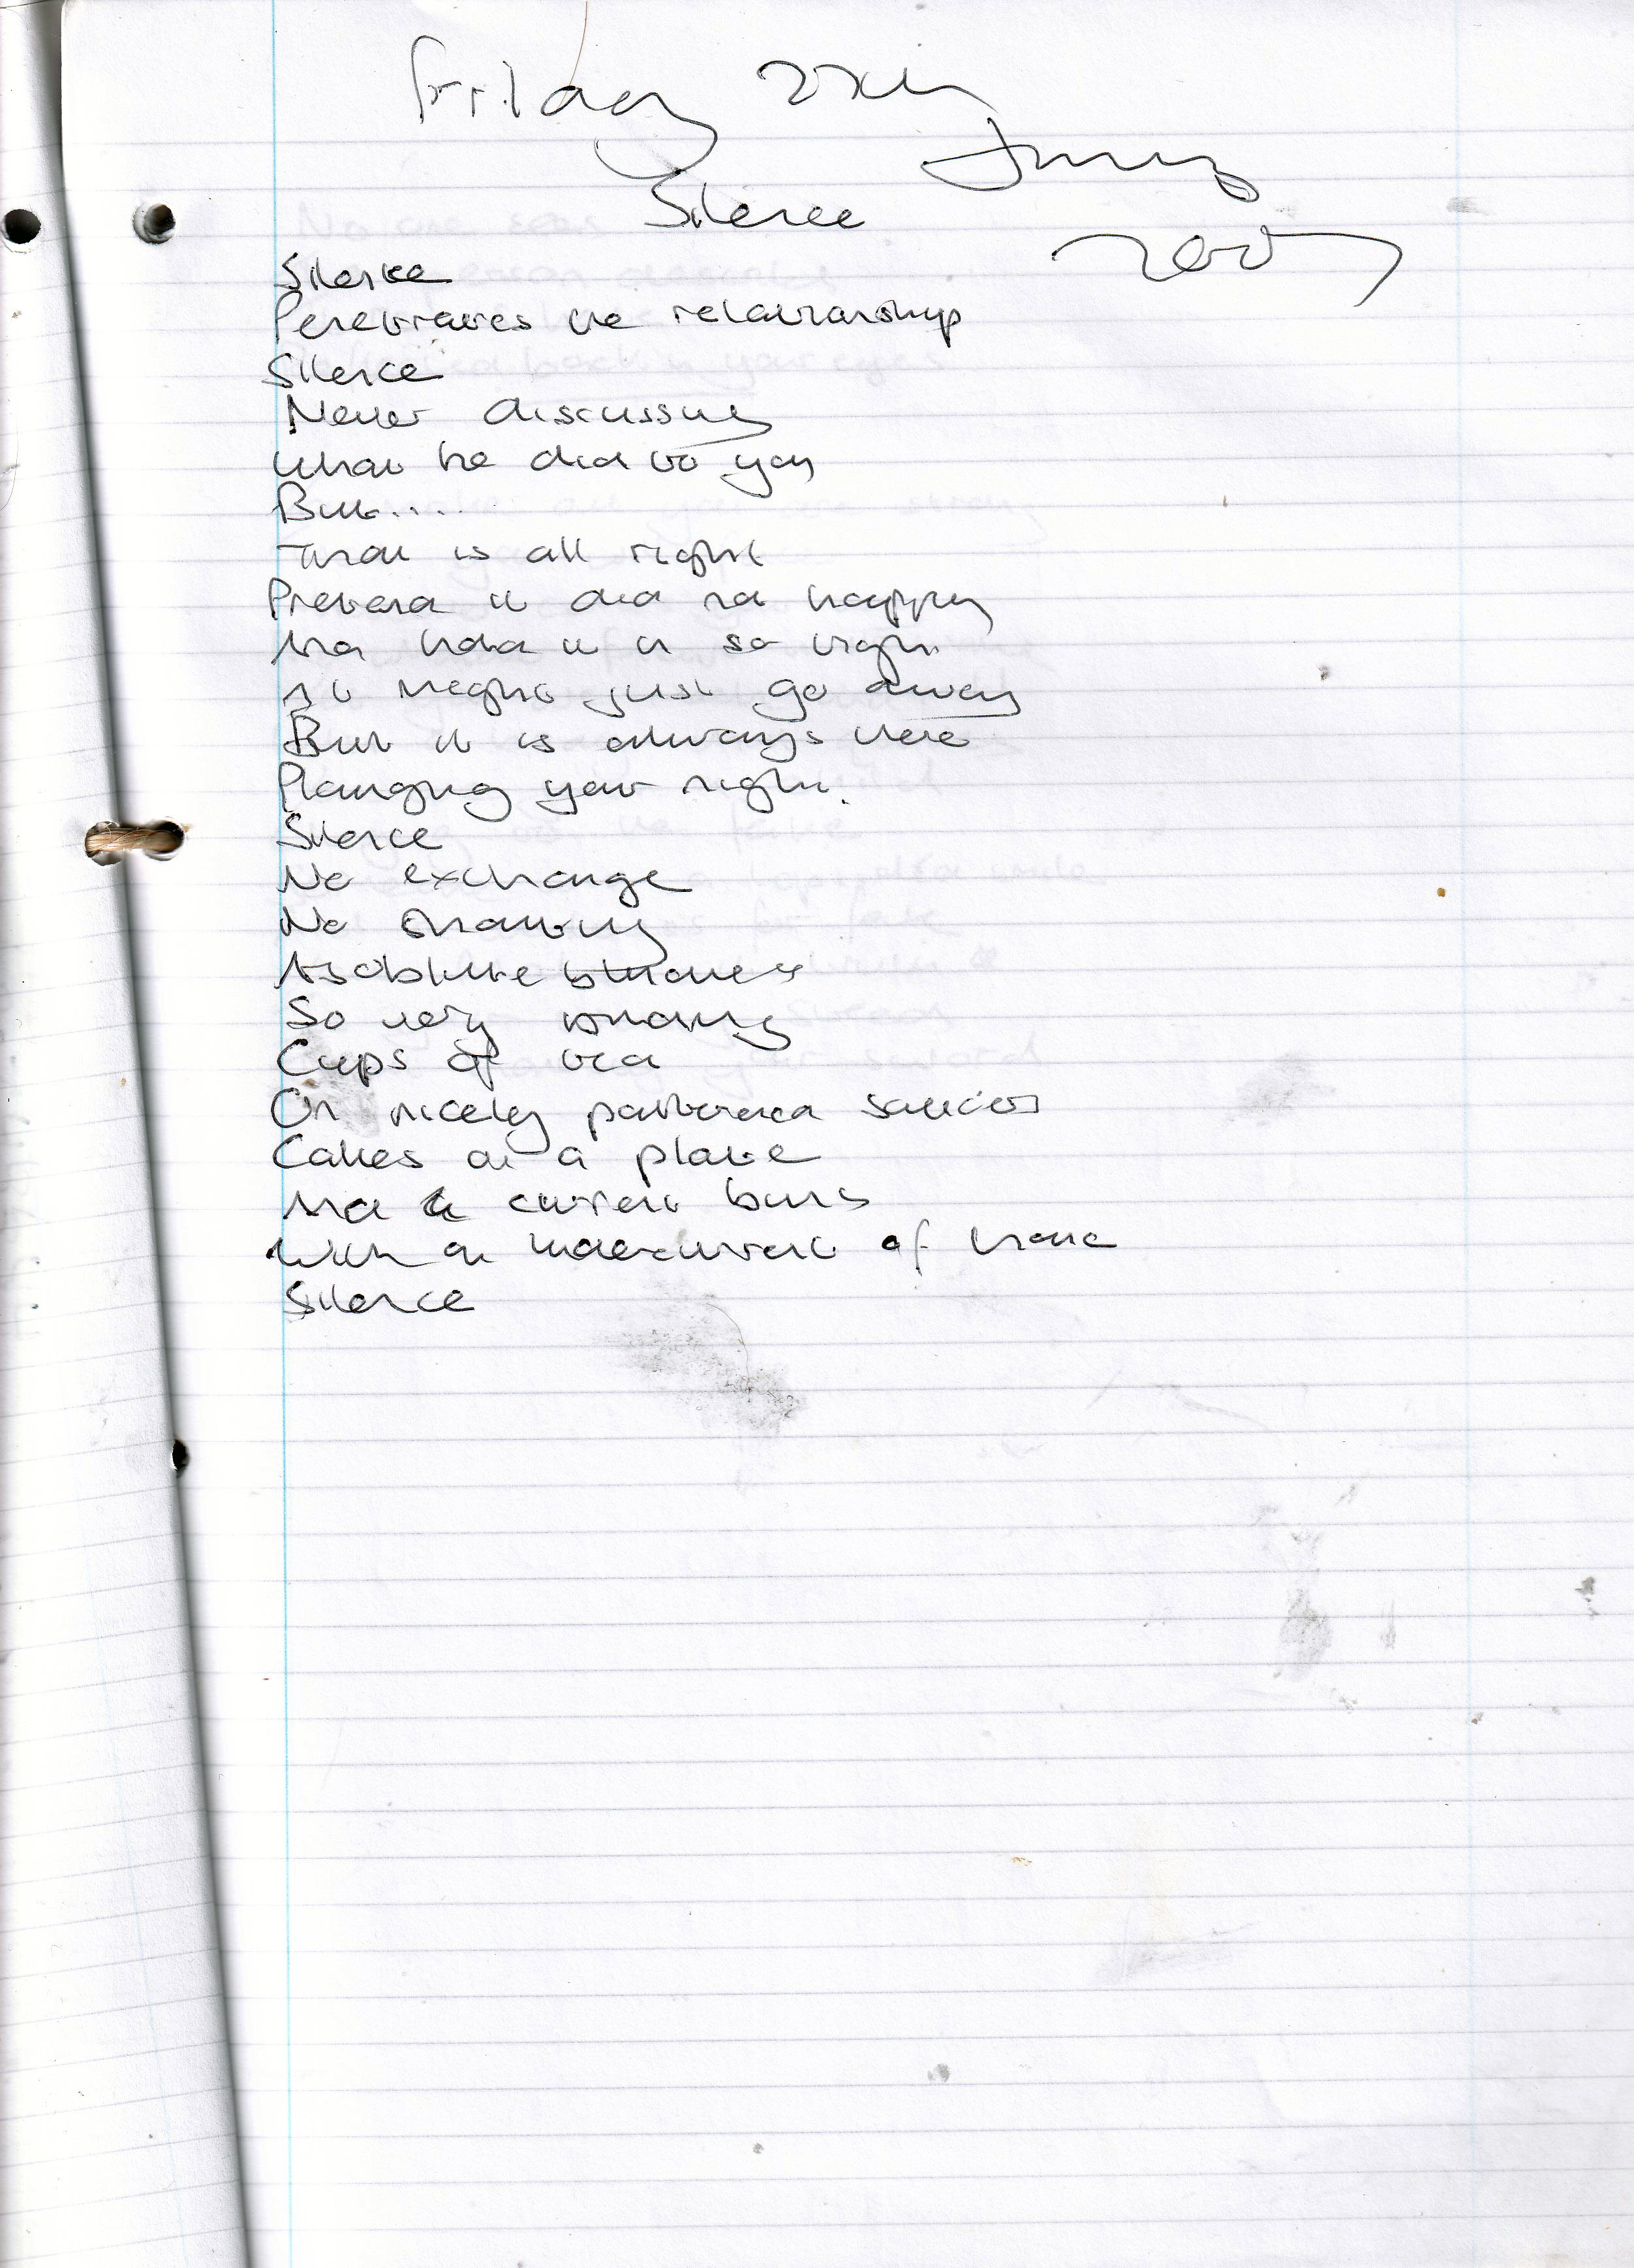 Friday
Silence
Silence
Penetrates the relationship
Silence
Never discussing
What he did to you
But.....
That is all right
Pretend it did not happen
And hold it in so tight
It might just go away
But it is always there
Plaguing your night.
Silence
No exchange
No sharing
Absolute
So very
Cups of tea
On nicely patterned saucers
Cakes on a plate
And current buns
With an undercurrent of
Silence